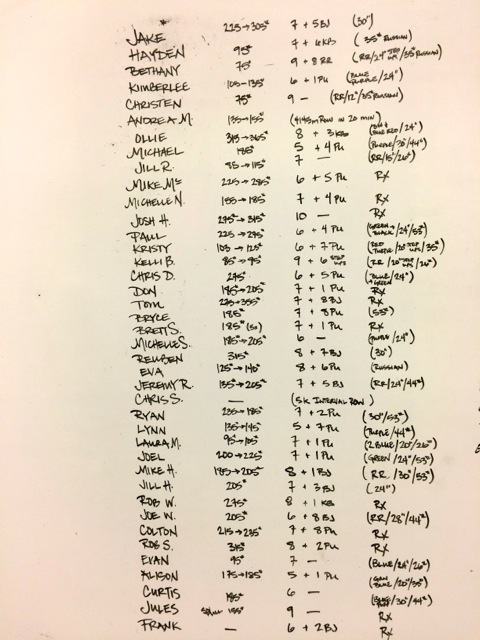 JAKE 225→305# 7 + 5BJ (30")
HAYDEN 95# 7 + 6KB (35# RUSSIAN)
BETHANY 75# 9 + 8 RR (RR/24" STEP UPS/35# RUSSIAN)
KIMBERLEE 105→135# 6 + 1PU (BLUE PURPLE/24")
CHRISTEN 75# 9 — (RR/12"/35# RUSSIAN)
ANDREA M. 135→155# (4145m ROW IN 20 MIN)
OLLIE 345→365# 8 + 3 KBS RED/24")
MICHAEL 185# 5 + 4 PU (PURPLE/30"/44#)
JILL R. 85→115# 7 — (RR/15"/26#)
MIKE Mc 225→285# 6 + 5 PU RX
MICHELLE N. 155→185# 7 + 4PU RX
JOSH H. 295→315# 10 — RX
PAUL 225→275# 6 + 4 PU (GREEN + BLACK/24"/53#)
KRISTY 105→125# 6 + 7 PU (RED PURPLE/20" STEP UPS/35#)
KELLI B. 85→95# 9 + 6 STEP UPS (RR/20" STEP UPS/26#)
CHRIS D. 275# 6 + 5 PU (BLUE + GREEN/24")
DON 185→205# 7 + 1 PU RX
TOM 275→355# 7 + 8BJ RX
BRYCE 185# 7 + 8PU (53#)
BRETT S. 185# (50) 7 + 1 PU RX
MICHELLE S. 185→205# 6 — (PURPLE/24")
REUBEN 315# 8 + 7BJ (30")
EVA 125→140# 8 + 6PU (RUSSIAN)
JEREMY R. 135→205# 7 + 5 BJ (RR/24"/44#)
CHRIS S. — (5K INTERVAL ROW)
RYAN 185# 7 + 2PU (30"/53#)
LYNN 135→145# 5 + 7PU (PURPLE/44#)
LAURA M. 95→105# 7 + 1PU (2 BLUE/20"/26#)
JOEL 200→225# 7 + 1PU (GREEN/24"/53#)
MIKE H. 185→205# 8 + 1BJ (RR/30"/53#)
JILL H. 205# 7 + 3BJ (24")
ROB W. 275# 8 + 1 KB RX
JOE W. 205# 6 + 8BJ (RR/28"/44#)
COLTON 215→235# 7 + 8PU RX
ROB S. 315# 8 + 2PU RX
EVAN 95# 7 — (BLUE/24"/26#)
ALISON 175→185# 5 + 1 PU BLUE/20"/35#)
CURTIS 185# 6 — /30"/44#)
JULES 155# 9 — RX
FRANK — 6 + 2BJ RX